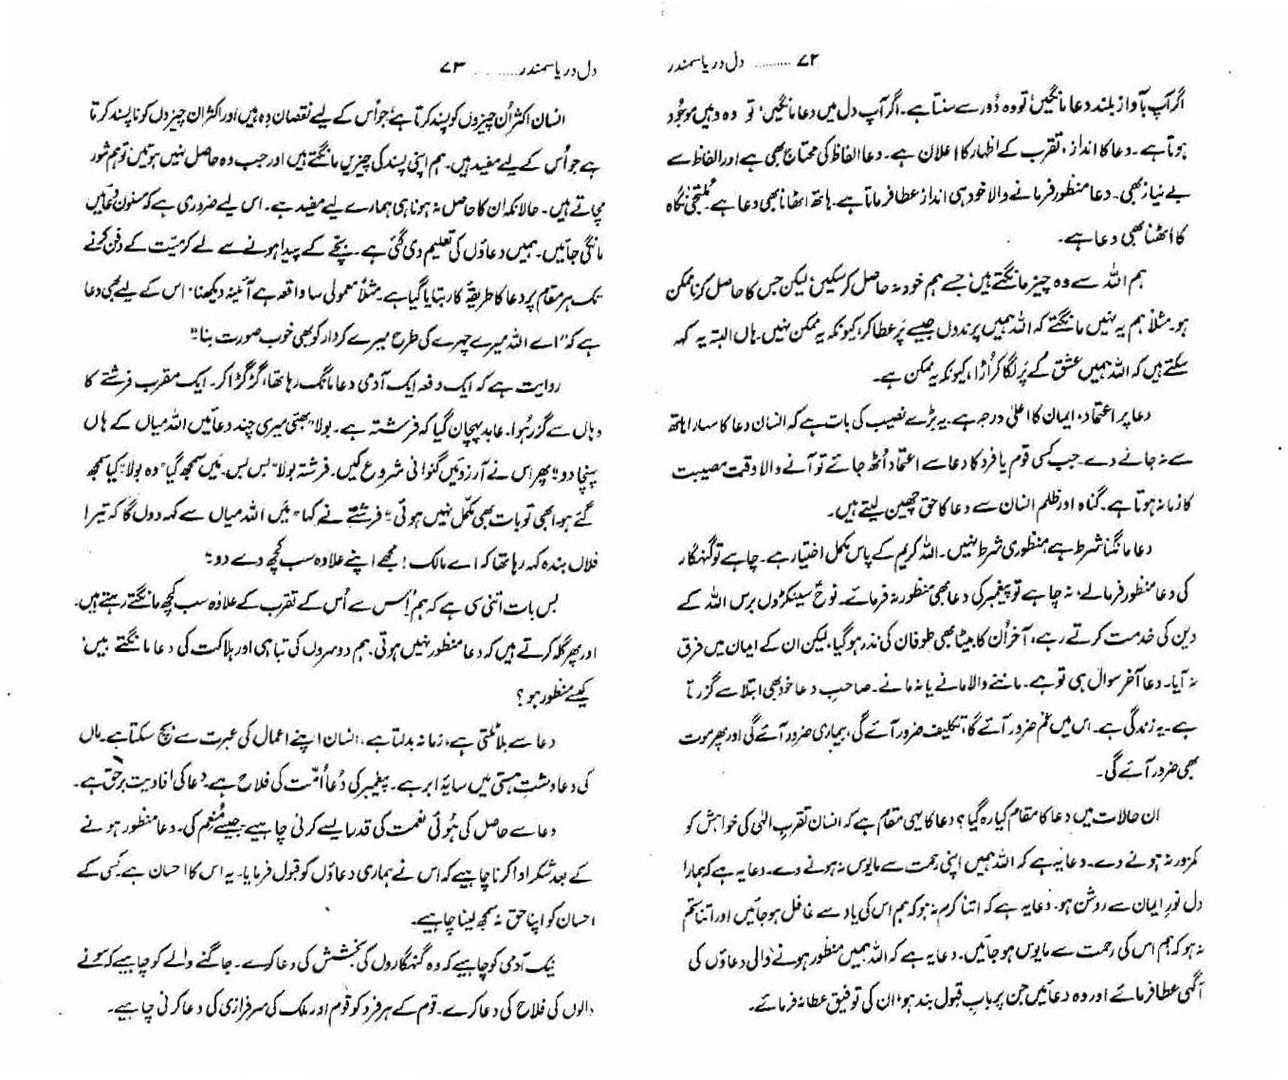 ۷۲ .......... دل دریا سمندر
اگر آپ بآواز بلند دعا مانگیں تو وہ دُور سے سنتا ہے۔ اگر آپ دل میں دعا مانگیں، تو وہ وہیں موجود
ہوتا ہے۔ دعا کا انداز، تقرب کے اظہار کا اعلان ہے۔ دعا الفاظ کی محتاج بھی ہے اور الفاظ سے
بے نیاز بھی۔ دعا منظور فرمانے والا خود ہی انداز عطا فرماتا ہے۔ ہاتھ اٹھانا بھی دعا ہے۔ ملتجی نگاہ
کا اٹھنا بھی دعا ہے۔
ہم اللہ سے وہ چیز مانگتے ہیں جسے ہم خود نہ حاصل کر سکیں، لیکن جس کا حاصل کرنا ممکن
ہو۔ مثلاً ہم یہ نہیں مانگتے کہ اللہ ہمیں پرندوں جیسے پَر عطا کر، کیونکہ یہ ممکن نہیں۔ ہاں البتہ یہ کہہ
سکتے ہیں کہ اللہ ہمیں عشق کے پَر لگا کر اُڑا، کیونکہ یہ ممکن ہے۔
دعا پر اعتماد، ایمان کا اعلیٰ درجہ ہے۔ یہ بڑے نصیب کی بات ہے کہ انسان دعا کا سہارا ہاتھ
سے نہ جانے دے۔ جب کسی قوم یا فرد کا دعا سے اعتماد اُٹھ جائے تو آنے والا وقت مصیبت
کا زمانہ ہوتا ہے۔ گناہ اور ظلم انسان سے دعا کا حق چھین لیتے ہیں۔
دعا مانگنا شرط ہے، منظوری شرط نہیں۔ اللہ کریم کے پاس مکمل اختیار ہے۔ چاہے تو گنہگار
کی دعا منظور فرما لے، نہ چاہے تو پیغمبر کی دعا بھی منظور نہ فرمائے۔ نوحؑ سینکڑوں برس اللہ کے
دین کی خدمت کرتے رہے، آخر اُن کا بیٹا بھی طوفان کی نذر ہو گیا، لیکن ان کے ایمان میں فرق
نہ آیا۔ دعا آخر سوال ہی تو ہے۔ ماننے والا مانے یا نہ مانے۔ صاحبِ دعا خود بھی ابتلا سے گزرتا
ہے۔ یہ زندگی ہے۔ اس میں غم ضرور آئے گا، تکلیف ضرور آئے گی، بیماری ضرور آئے گی اور پھر موت
بھی ضرور آئے گی۔
ان حالات میں دعا کا مقام کیا رہ گیا؟ دعا کا یہی مقام ہے کہ انسان تقربِ الٰہی کی خواہش کو
کمزور نہ ہونے دے۔ دعا یہ ہے کہ اللہ ہمیں اپنی رحمت سے مایوس نہ ہونے دے۔ دعا یہ ہے کہ ہمارا
دل نورِ ایمان سے روشن ہو۔ دعا یہ ہے کہ اتنا کرم نہ ہو کہ ہم اس کی یاد سے غافل ہو جائیں اور اتنا ستم
نہ ہو کہ ہم اس کی رحمت سے مایوس ہو جائیں۔ دعا یہ ہے کہ اللہ ہمیں منظور ہونے والی دعاؤں کی
آگہی عطا فرمائے اور وہ دعائیں جن پر بابِ قبول بند ہو، ان کی توفیق عطا نہ فرمائے۔
دل دریا سمندر .......... ۷۳
انسان اکثر اُن چیزوں کو پسند کرتا ہے جو اُس کے لیے نقصان دہ ہیں اور اکثر ان چیزوں کو ناپسند کرتا
ہے جو اُس کے لیے مفید ہیں۔ ہم اپنی پسند کی چیزیں مانگتے ہیں اور جب وہ حاصل نہیں ہوتیں تو ہم شور
مچاتے ہیں۔ حالانکہ ان کا حاصل نہ ہونا ہی ہمارے لیے مفید ہے۔ اس لیے ضروری ہے کہ مسنون دعائیں
مانگی جائیں۔ ہمیں دعاؤں کی تعلیم دی گئی ہے۔ بچّے کے پیدا ہونے سے لے کر میّت کے دفن کرنے
تک ہر مقام پر دعا کا طریقۂ کار بتایا گیا ہے۔ مثلاً معمولی سا واقعہ ہے آئینہ دیکھنا۔ اس کے لیے بھی دعا
ہے کہ "اے اللہ میرے چہرے کی طرح میرے کردار کو بھی خوب صورت بنا"۔
روایت ہے کہ ایک دفعہ ایک آدمی دعا مانگ رہا تھا، گڑگڑا کر۔ ایک مقرب فرشتے کا
وہاں سے گزر ہُوا۔ عابد پہچان گیا کہ فرشتہ ہے۔ بولا "بھئی میری چند دعائیں اللہ میاں کے ہاں
پہنچا دو"، پھر اس نے آرزوئیں گنوانی شروع کیں۔ فرشتہ بولا "بس بس۔ مَیں سمجھ گیا"۔ وہ بولا "کیا سمجھ
گئے ہو۔ ابھی تو بات بھی مکمل نہیں ہوئی"۔ فرشتے نے کہا "مَیں اللہ میاں سے کہہ دوں گا کہ تیرا
فلاں بندہ کہہ رہا تھا کہ اے مالک! مجھے اپنے علاوہ سب کچھ دے دو"۔
بس بات اتنی سی ہے کہ ہم اِس سے اُس کے تقرب کے علاوہ سب کچھ مانگتے رہتے ہیں۔
اور پھر گلہ کرتے ہیں کہ دعا منظور نہیں ہوتی۔ ہم دوسروں کی تباہی اور ہلاکت کی دعا مانگتے ہیں،
کیسے منظور ہو؟
دعا سے بلا ٹلتی ہے، زمانہ بدلتا ہے، انسان اپنے اعمال کی عبرت سے بچ سکتا ہے۔ ماں
کی دعا دشتِ ہستی میں سایۂ ابر ہے۔ پیغمبر کی دُعا اُمّت کی فلاح ہے۔ دعا کی افادیت برحق ہے۔
دعا سے حاصل کی ہُوئی نعمت کی قدر ایسے کرنی چاہیے جیسے مُنعِم کی۔ دعا منظور ہونے
کے بعد شکر ادا کرنا چاہیے کہ اس نے ہماری دعاؤں کو قبول فرمایا۔ یہ اس کا احسان ہے، کسی کے
احسان کو اپنا حق نہ سمجھ لینا چاہیے۔
نیک آدمی کو چاہیے کہ وہ گنہگاروں کی بخشش کی دعا کرے۔ جاگنے والے کو چاہیے کہ سونے
والوں کی فلاح کی دعا کرے۔ قوم کے ہر فرد کو قوم اور ملک کی سرفرازی کی دعا کرنی چاہیے۔